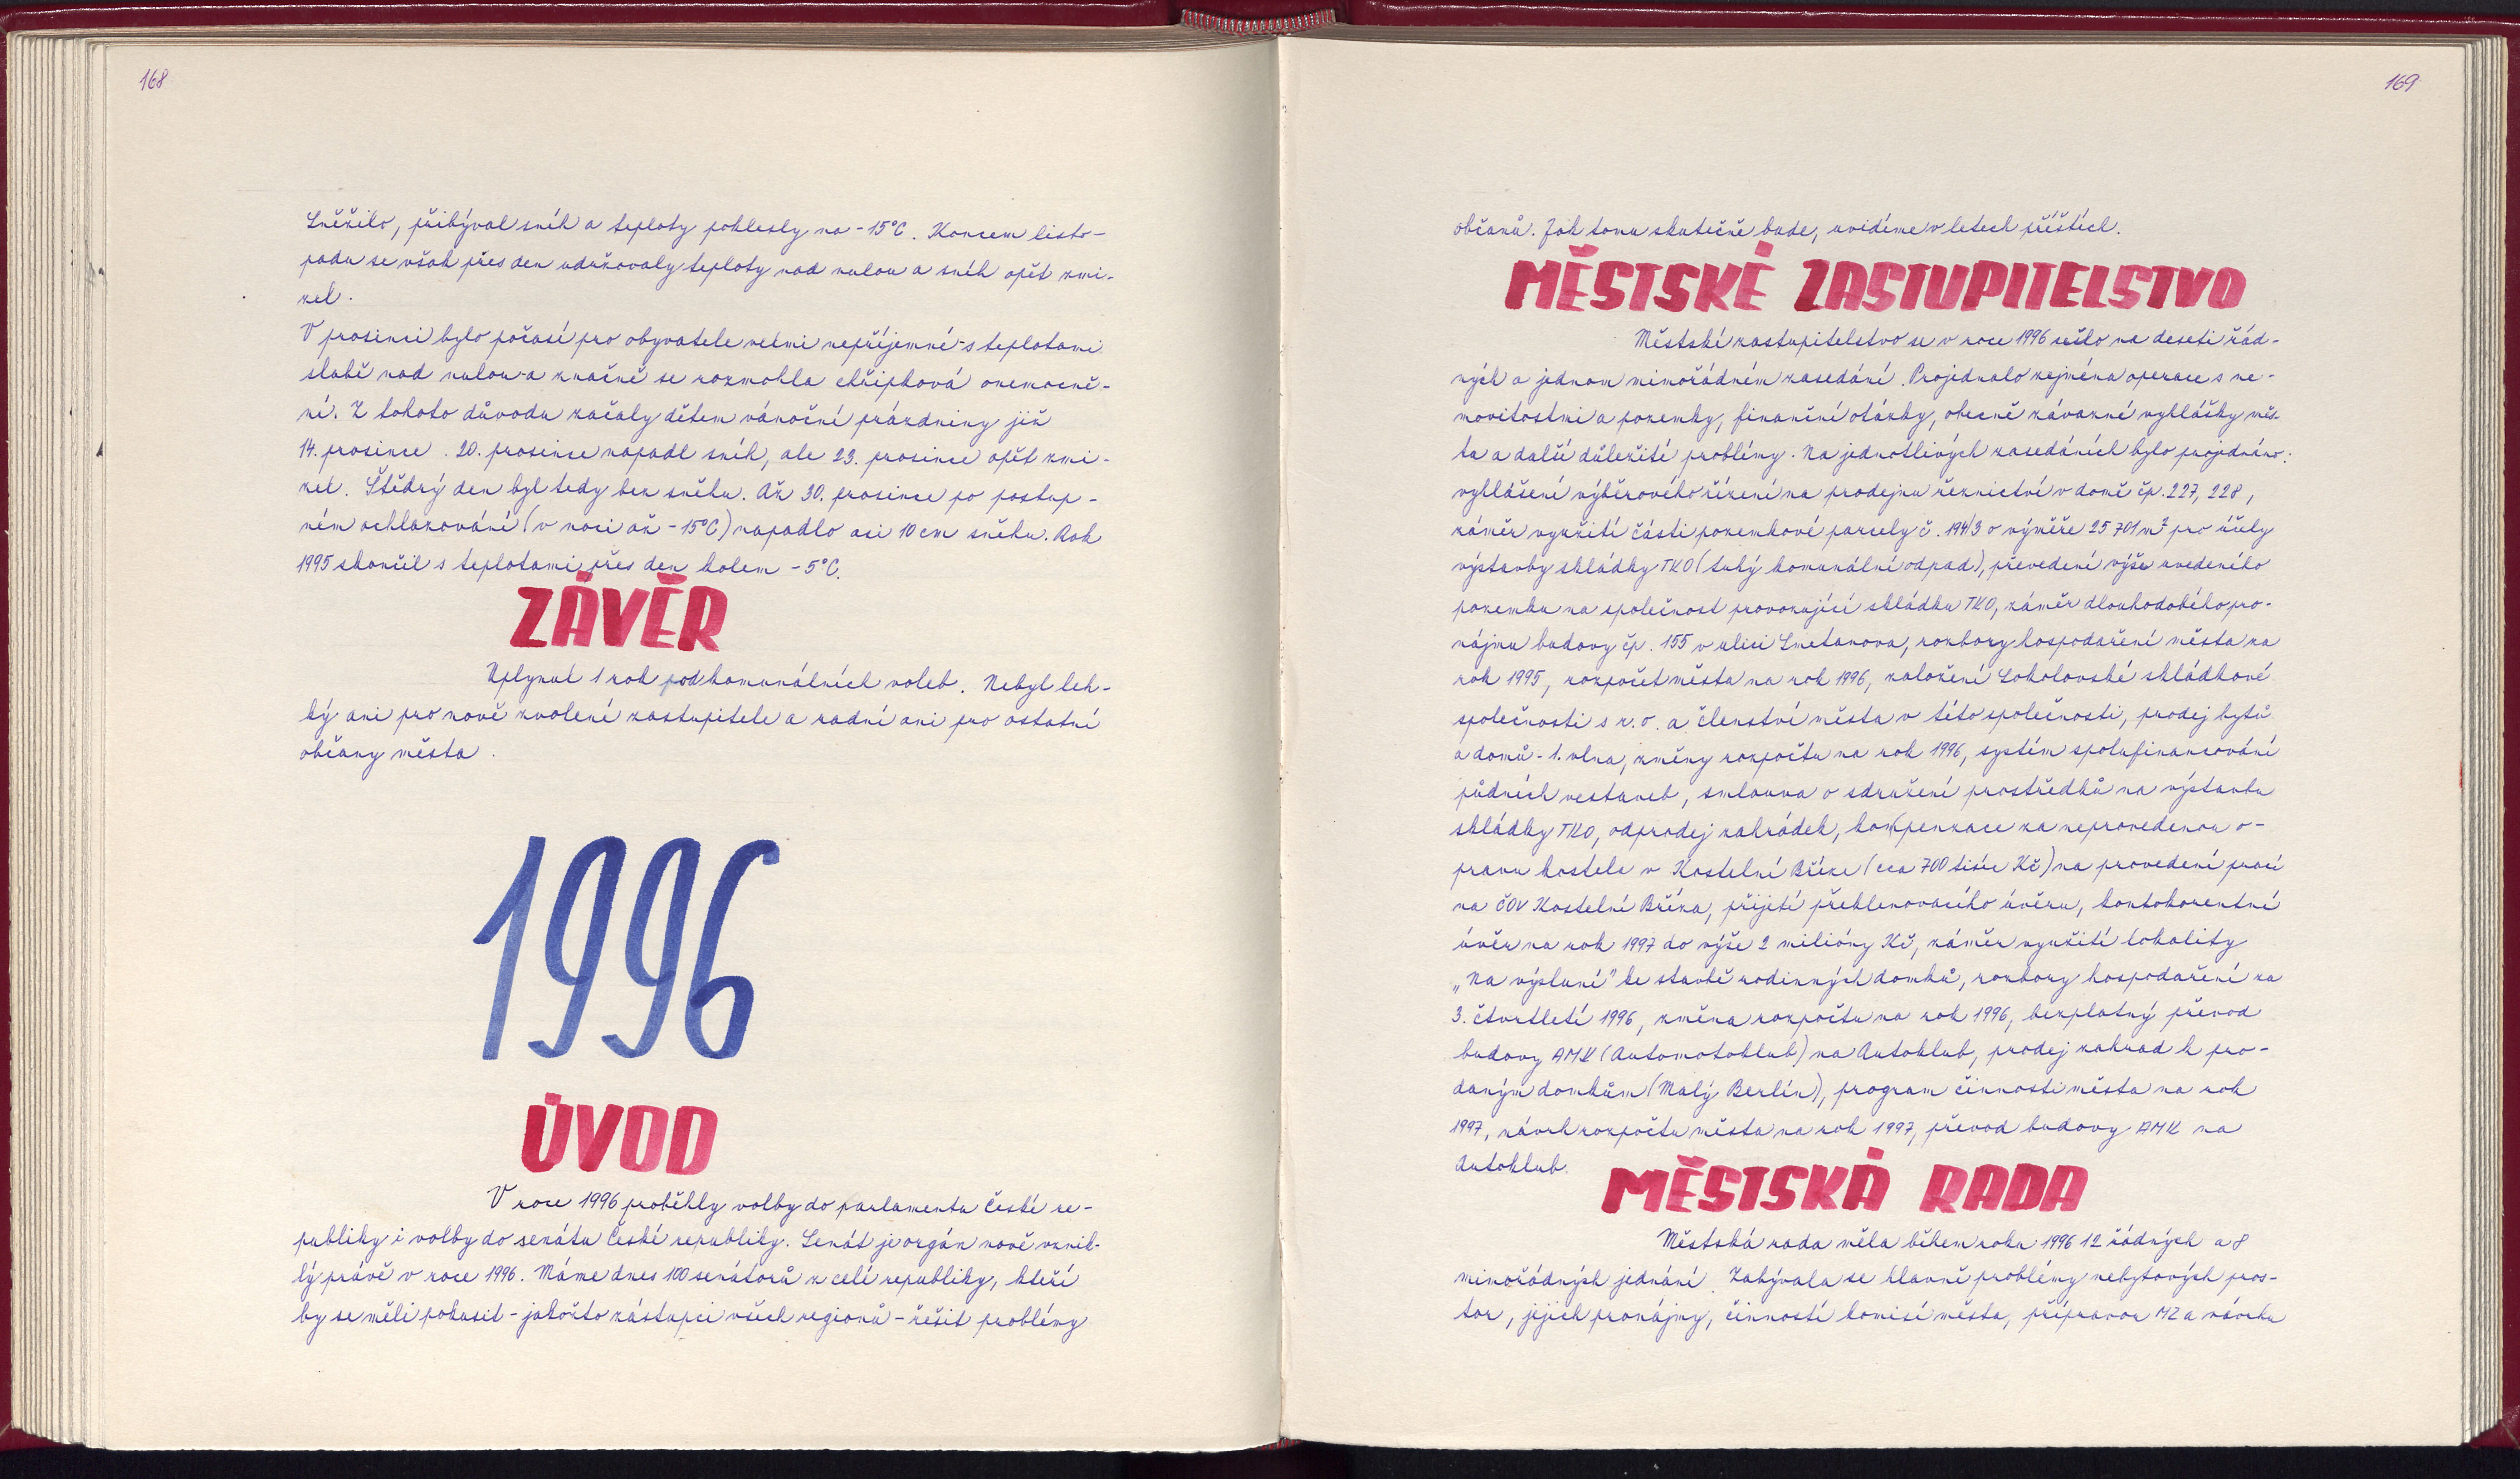 168
Sněžilo, přibýval sníh a teploty poklesly na -15°C. Koncem listo-
padu se však přes den udržovaly teploty nad nulou a sníh opět zmi-
zel.
V prosinci bylo počasí pro obyvatele velmi nepříjemné - s teplotami
slabě nad nulou - a značně se rozmohla chřipková onemocně-
ní. Z tohoto důvodu začaly dětem vánoční prázdniny již
14. prosince. 20. prosince napadl sníh, ale 23. prosince opět zmi-
zel. Štědrý den byl tedy bez sněhu. Až 30. prosince po postup-
ném ochlazování (v noci až -15°C) napadlo asi 10 cm sněhu. Rok
1995 skončil s teplotami přes den kolem -5°C.
ZÁVĚR
Uplynul 1 rok od komunálních voleb. Nebyl leh-
ký ani pro nově zvolené zastupitele a radní ani pro ostatní
občany města.
1996
ÚVOD
V roce 1996 proběhly volby do parlamentu České re-
publiky i volby do senátu České republiky. Senát je orgán nově vznik-
lý právě v roce 1996. Máme dnes 100 senátorů z celé republiky, kteří
by se měli pokusit - jakožto zástupci všech regionů - řešit problémy
169
občanů. Jak tomu skutečně bude, uvidíme v letech příštích.
MĚSTSKÉ ZASTUPITELSTVO
Městské zastupitelstvo se v roce 1996 sešlo na deseti řád-
ných a jednom mimořádném zasedání. Projednalo zejména operace s ne-
movitostmi a pozemky, finanční otázky, obecně závazné vyhlášky měs-
ta a další důležité problémy. Na jednotlivých zasedáních bylo projednáno:
vyhlášení výběrového řízení na prodejnu řeznictví v domě čp. 227, 228,
záměr využití části pozemkové parcely č. 194/3 o výměře 25 701 m² pro účely
výstavby skládky TKO (tuhý komunální odpad), převedení výše uvedeného
pozemku na společnost provozující skládku TKO, záměr dlouhodobého pro-
nájmu budovy čp. 155 v ulici Smetanova, rozbory hospodaření města za
rok 1995, rozpočet města na rok 1996, založení Sokolovské skládkové
společnosti s r.o. a členství města v této společnosti, prodej bytů
a domů - 1. vlna, změny rozpočtu na rok 1996, systém spolufinancování
půdních vestaveb, smlouva o sdružení prostředků na výstavbu
skládky TKO, odprodej zahrádek, kompenzace za neprovedenou o-
pravu kostela v Kostelní Bříze (cca 700 tisíc Kč) na provedení prací
na ČOV Kostelní Bříza, přijetí překlenovacího úvěru, kontokorentní
úvěr na rok 1997 do výše 2 milióny Kč, záměr využití lokality
„Na výsluní" ke stavbě rodinných domků, rozbory hospodaření za
3. čtvrtletí 1996, změna rozpočtu na rok 1996, bezplatný převod
budovy AMK (Automotoklub) na Autoklub, prodej zahrad k pro-
daným domkům (Malý Berlín), program činnosti města na rok
1997, návrh rozpočtu města na rok 1997, převod budovy AMK na
Autoklub.
MĚSTSKÁ RADA
Městská rada měla během roku 1996 12 řádných a 8
mimořádných jednání. Zabývala se hlavně problémy nebytových pros-
tor, jejich pronájmy, činností komisí města, přípravou MZ a návrhu